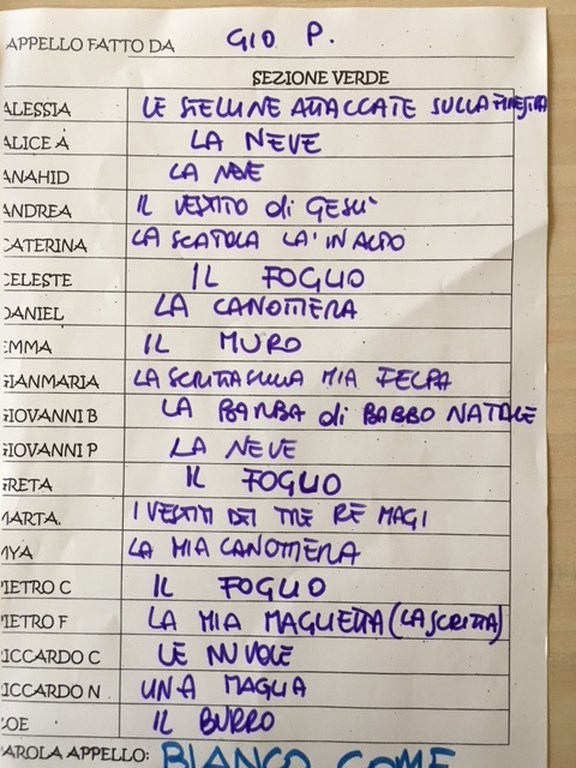 APPELLO FATTO DA GIO P.
SEZIONE VERDE
ALESSIA LE STELLINE ATTACCATE SULLA FINESTRA
ALICE A LA NEVE
ANAHID LA NEVE
ANDREA IL VESTITO di GESU'
CATERINA LA SCATOLA LA' IN ALTO
CELESTE IL FOGLIO
DANIEL LA CANOTTIERA
EMMA IL MURO
GIANMARIA LA SCRITTA SULLA MIA FELPA
GIOVANNI B LA BARBA di BABBO NATALE
GIOVANNI P LA NEVE
GRETA IL FOGLIO
MARTA. I VESTITI DEI TRE RE MAGI
MYA LA MIA CANOTTIERA
PIETRO C IL FOGLIO
PIETRO F LA MIA MAGLIETTA (LA SCRITTA)
RICCARDO C LE NUVOLE
RICCARDO N UNA MAGLIA
ZOE IL BURRO
PAROLA APPELLO: BIANCO COME